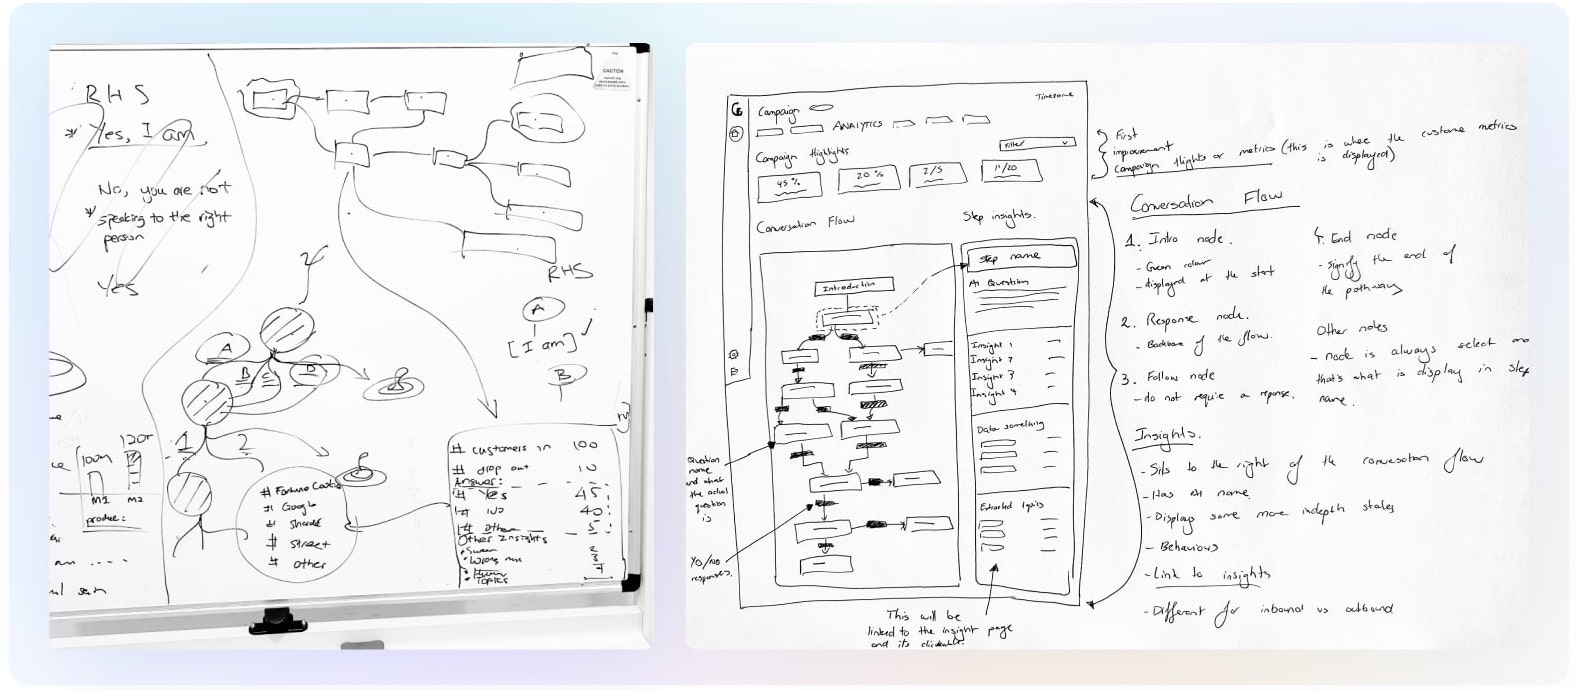 RHS
* Yes, I am,
No, you are not
* speaking to the right
person
Yes
CAUTION
RHS
A
[I am] ✓
B
A
B
C
D
1
2
100m
120m
M1
M2
produce:
# Google
# Street
# other
# customers in 100
# drop out 10
Answer:
# Yes 45
# NO 40
# other 5
Other Insights
• Swear 2
• Wrong num 3
• Topics
Timezone
Campaign
ANALYTICS
Filter
Campaign Highlights
45%
20%
2/5
11/20
Conversation Flow
Step insights.
Introduction
Step name
AI Question
Insight 1
Insight 2
Insight 3
Insight 4
Data something
Extracted topics
Question
name
and what
the actual
question
is
YO/NO
responses.
This will be
linked to the insight page
and its clickable.
First
improvement
Campaign Highlights or metrics (this is where the custome metrics
is displayed)
Conversation Flow
1. Intro node.
- Green colour
- displayed at the start
2. Response node.
- Backbone of the flow.
3. Follow node
- do not require a reponse.
4. End node
- signify the end of
the pathway
Other notes
- node is always select and
that's what is display in step
name.
Insights.
- Sits to the right of the conversation flow
- Has AI name
- Displays some more indepth states
- Behaviours
- Link to insights
- Different for inbound vs outbound